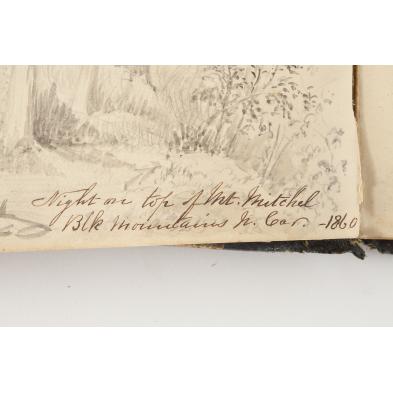 Night on top of Mt. Mitchel
Blk Mountains N. Car. -1860